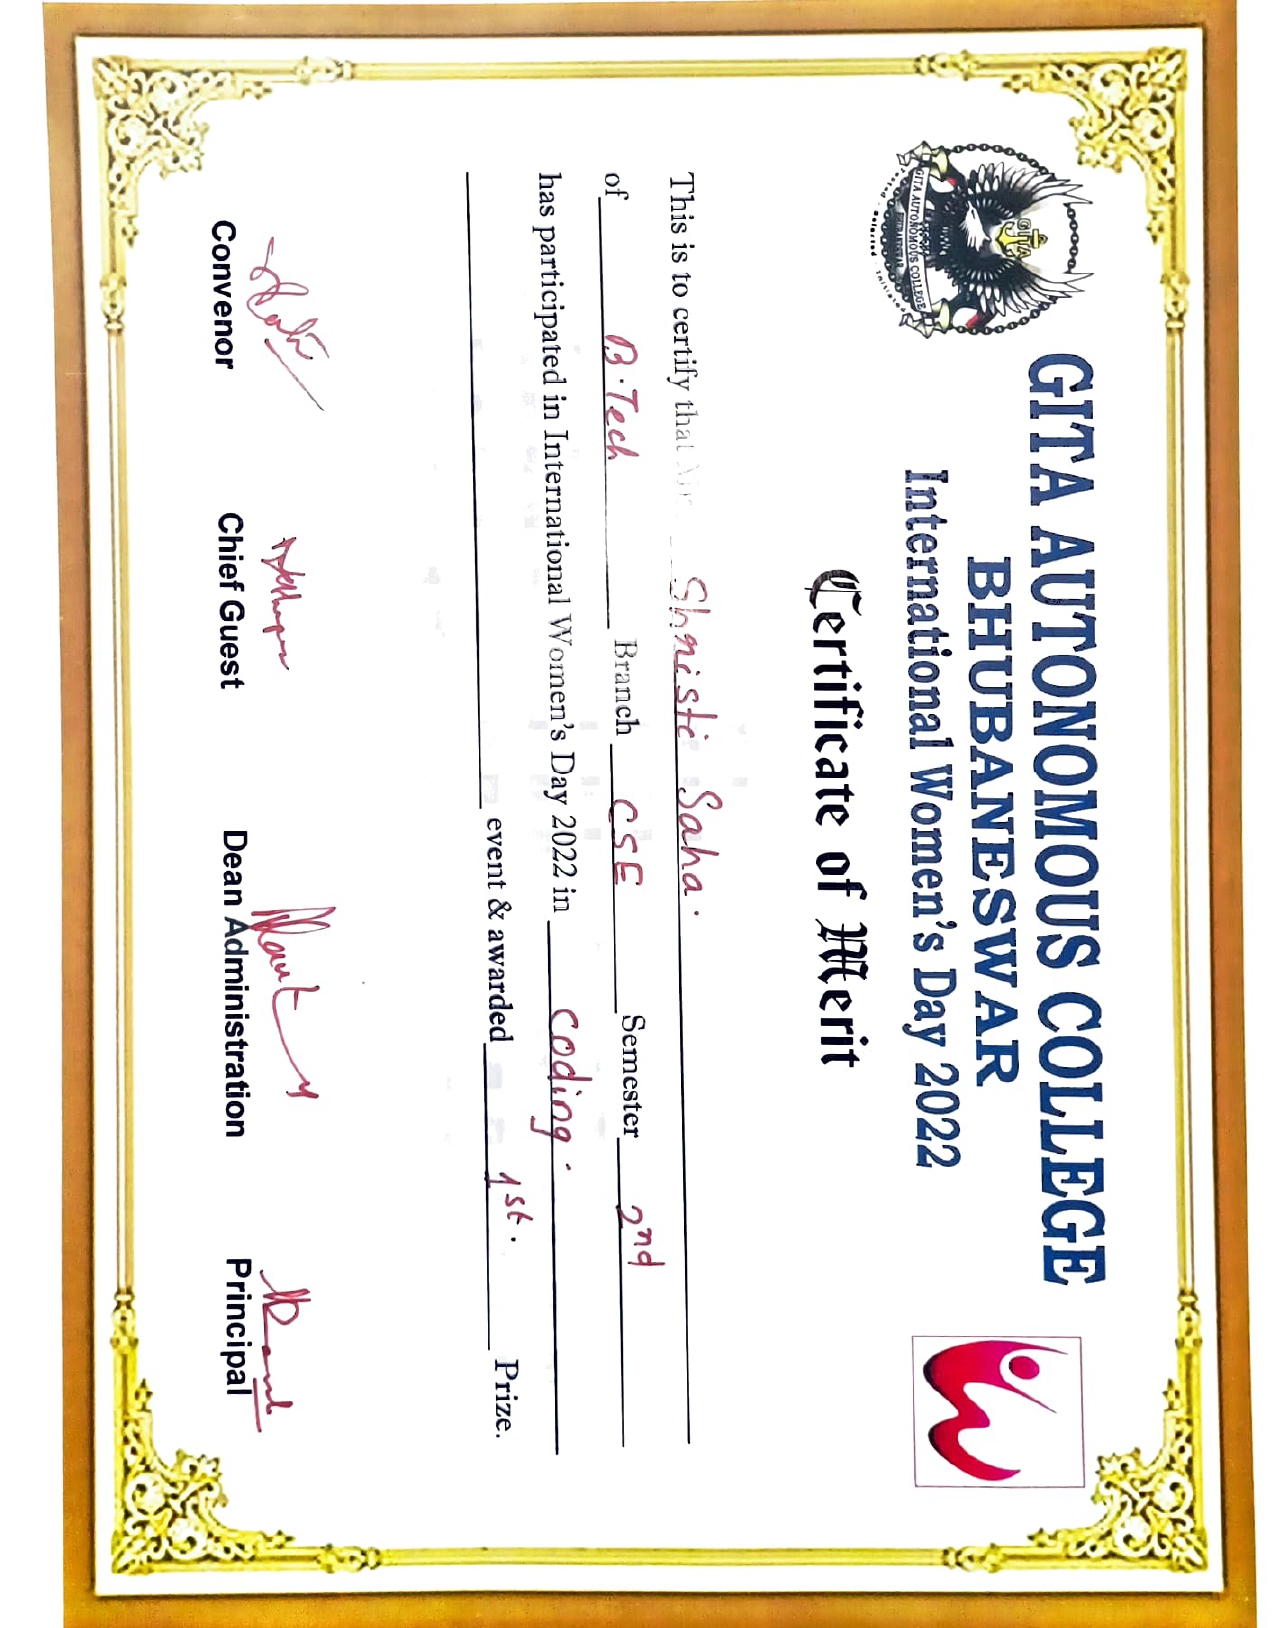 GITA AUTONOMOUS COLLEGE
BHUBANESWAR
International Women's Day 2022
GITA
GITA AUTONOMOUS COLLEGE
BHUBANESWAR
Certificate of Merit
This is to certify that Mr. Shristi Saha.
of B.Tech Branch CSE Semester 2nd
has participated in International Women's Day 2022 in Coding.
event & awarded 1st. Prize.
Convenor Chief Guest Dean Administration Principal